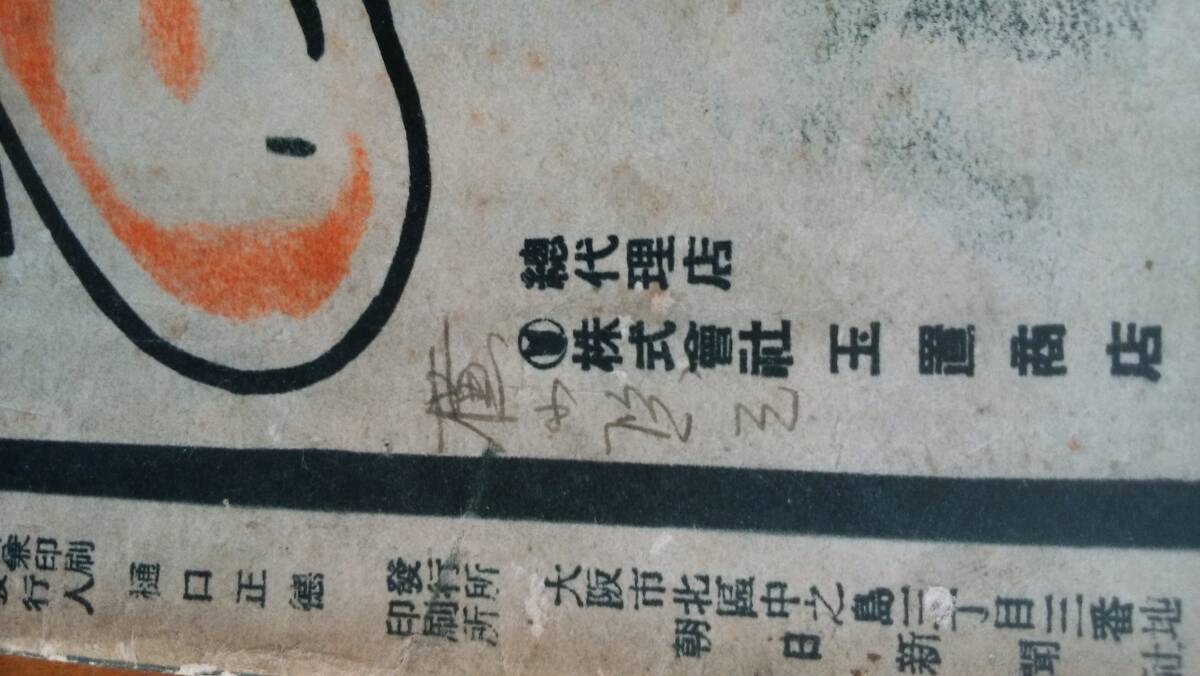 總代理店
株式會社 玉置商店
印刷人
樋口正德
發行所
印刷所
大阪市北區中之島三丁目三番地
朝日新聞社